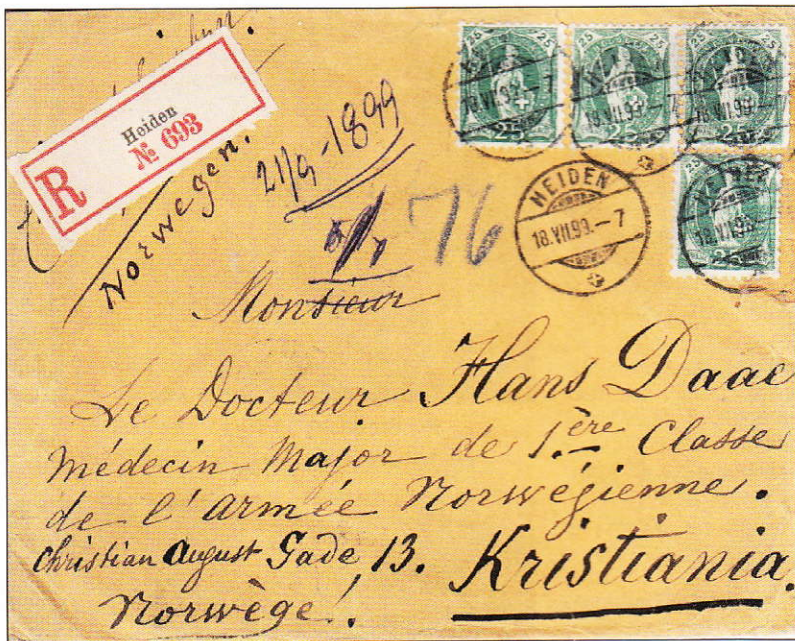 25 25 25 25 25 25
25 25
R
Heiden
№ 693
Norwegen.
21/9-1899
76
HEIDEN
18.VII.99.-7
Monsieur
Le Docteur Hans Daae
Médecin Major de 1ère Classe
de l'armée Norwégienne.
Christian August Gade 13. Kristiania.
Norwège!